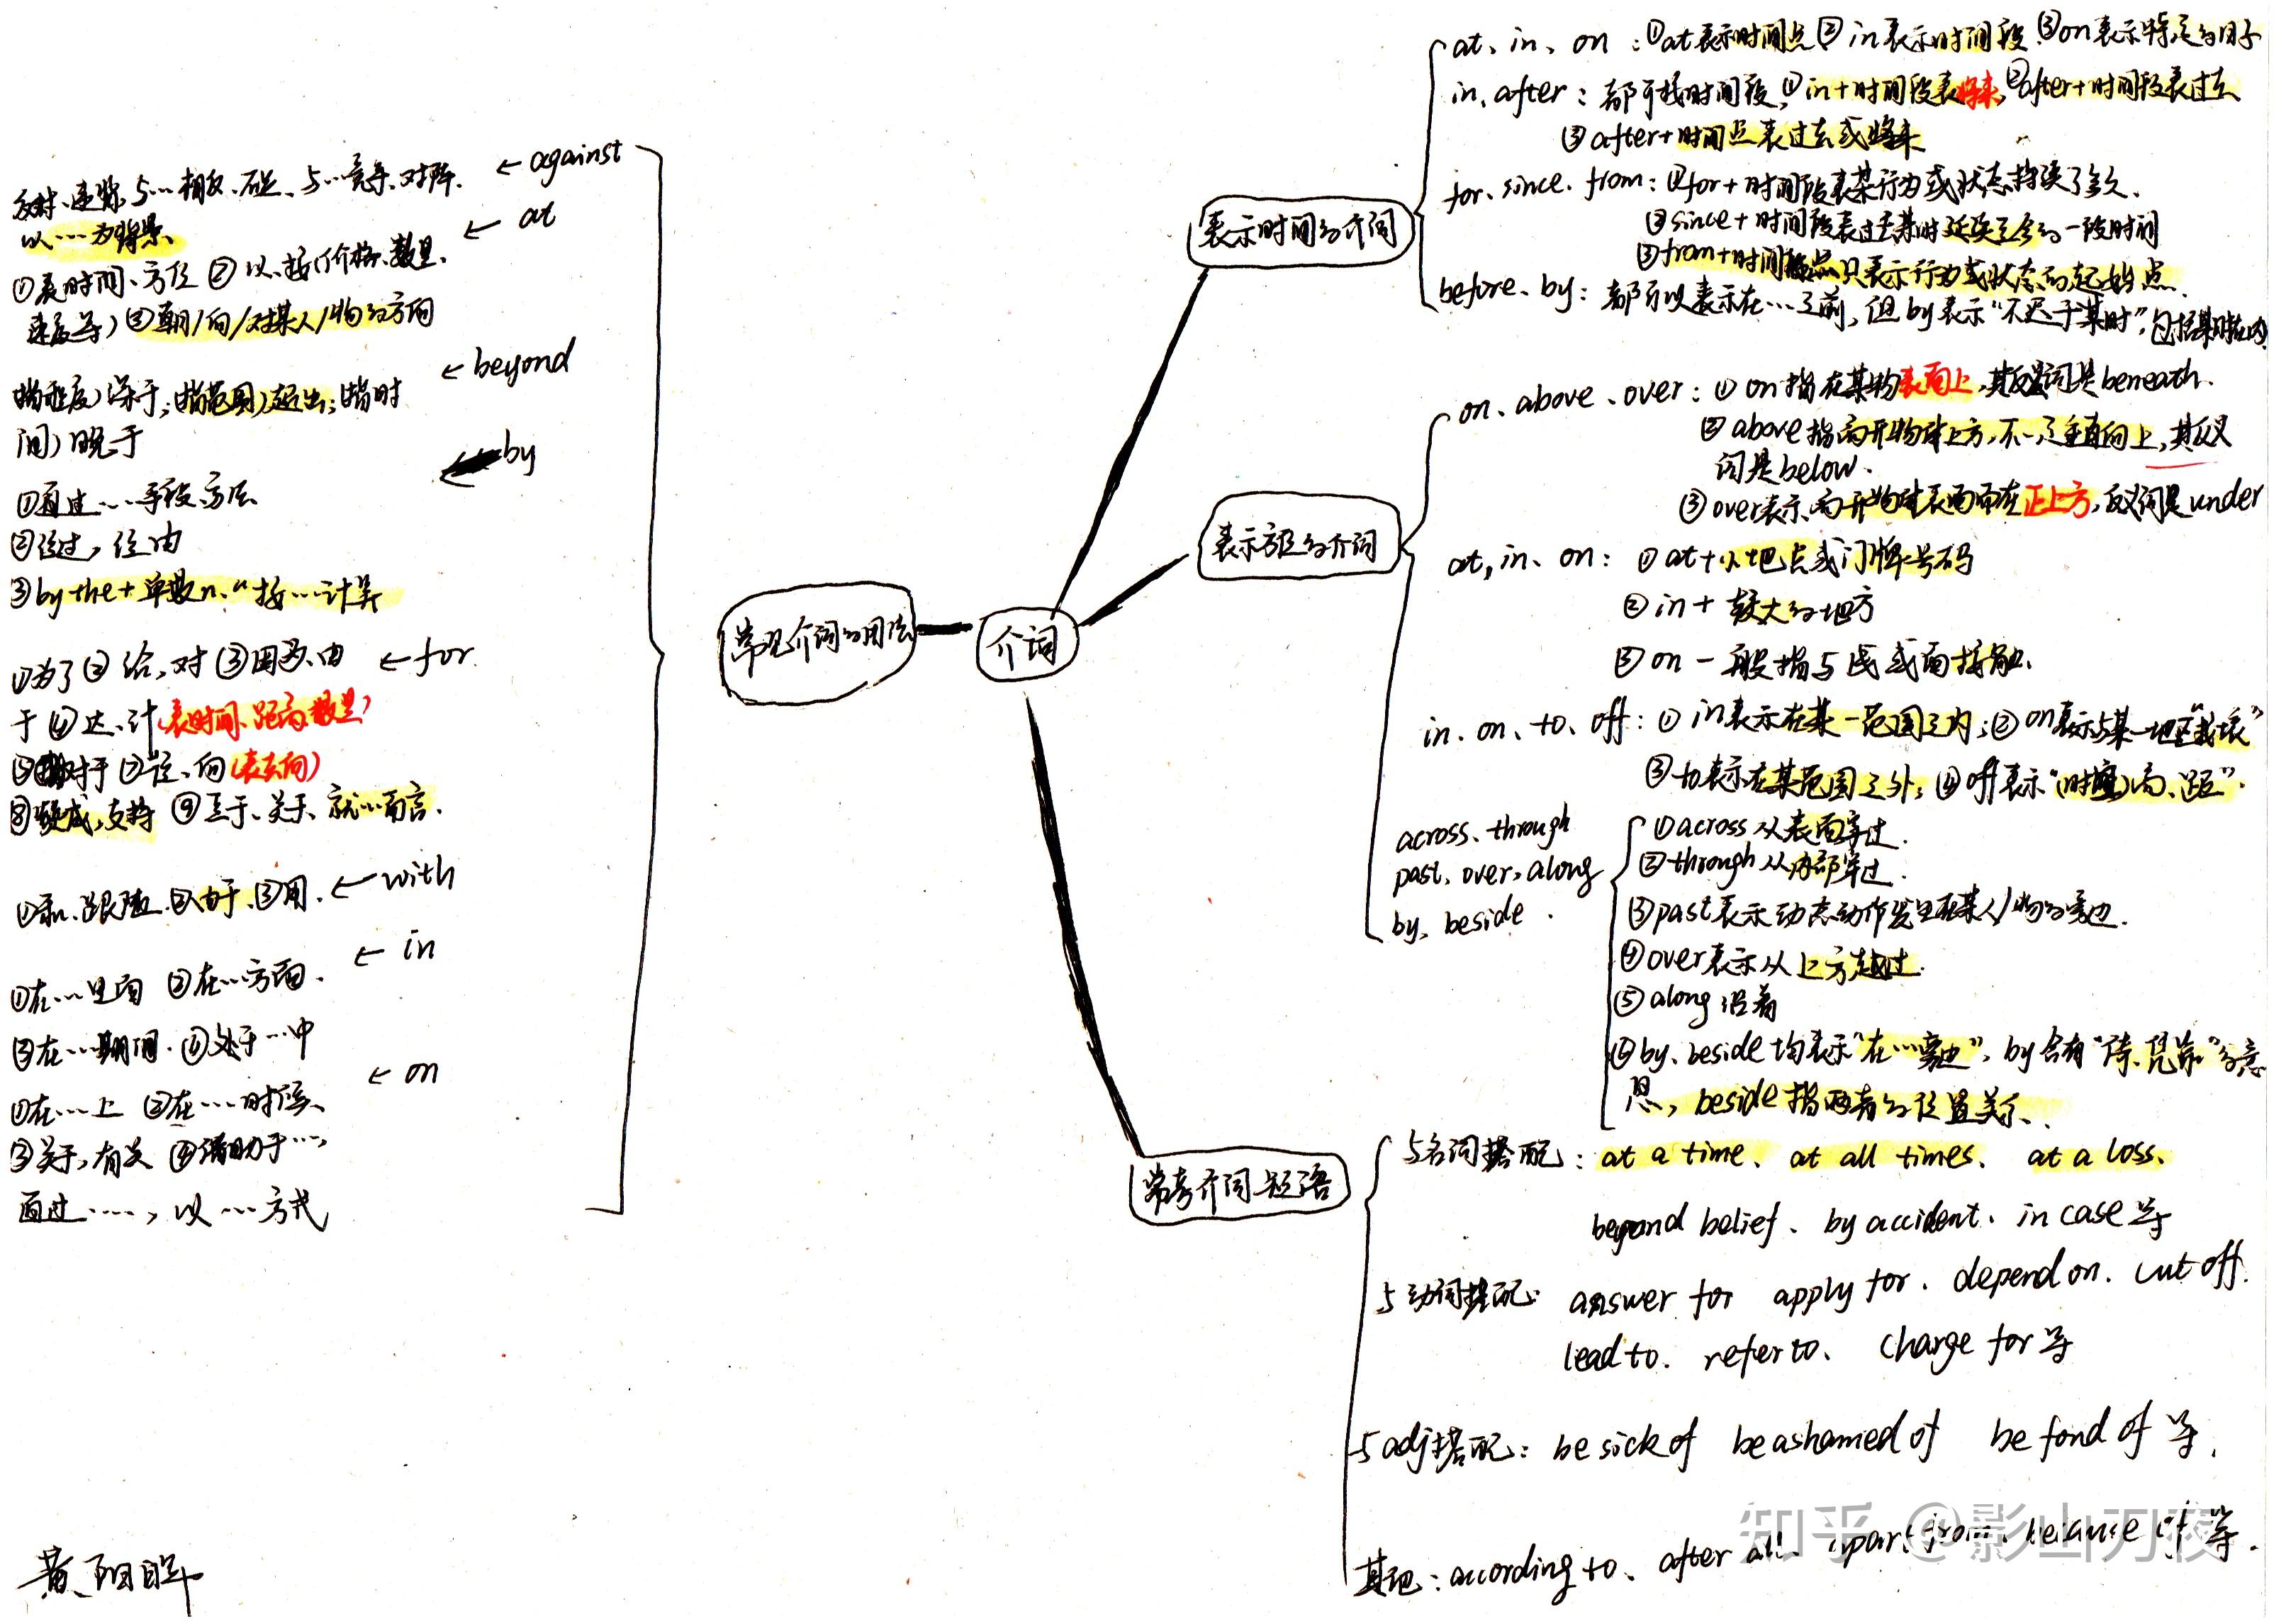 介词
常见介词的用法
← against
反对、违背、与…相反、碰、与…竞争、对阵、
以……为背景、
← at
①表时间、方位 ②以、按(价格、数量、
速度等) ③朝/向/对某人/物的方向
← beyond
(指程度)深于;(指范围)超出;(指时
间)晚于
← by
①通过……手段、方法
②经过,经由
③by the + 单数n.“按…计算
← for
①为了 ②给,对 ③因为、由
于 ④达、计(表时间、距离、数量)
对于 ⑦往、向(表去向)
⑧赞成,支持 ⑨至于、关于、就…而言.
← with
①和、跟随 ②由于、③用.
← in
①在…里面 ②在…方面.
③在…期间. ④处于…中
← on
①在…上 ②在……时候、
③关于,有关 ④借助于…,
通过……, 以…方式
表示时间的介词
at、in、on :①at表示时间点②in表示时间段、③on表示特定的日子
in、after : 都可接时间段,①in+时间段表将来,②after+时间段表过去
③after+时间点表过去或将来
for、since、from:①for+时间段表某行为或状态持续了多久.
②since+时间段表过去某时延续至今的一段时间
③from+时间点只表示行为或状态的起始点.
before、by: 都可以表示在…之前, 但by表示“不迟于某时”,包括某时在内
表示方位的介词
on、above、over: ① on 指在某物表面上,其反义词是beneath.
② above指高于物体上方,不一定垂直向上,其反义
词是below.
③over表示高于物体表面而在正上方,反义词是under
at, in、on: ① at+小地点或门牌号码
② in+ 较大的地方
③ on 一般指与线或面接触.
in、on、to、off: ① in表示在某一范围之内;② on表示与某一地区“接壤”
③to表示在某范围之外; ④off表示“(时空)离、距”.
across、through
past、over、along
by、beside.
①across从表面穿过.
②through从内部穿过.
③past表示动态动作发生在某人/物的旁边.
④over表示从上方越过.
⑤along 沿着
⑥by、beside均表示“在…旁边”, by含有“倚、凭靠”的意
思, beside指两者的位置关系.
常考介词短语
与名词搭配: at a time、at all times、at a loss、
beyond belief、by accident、in case等
与动词搭配: answer for apply for. depend on. cut off.
lead to. refer to、charge for等
与adj搭配: be sick of be ashamed of be fond of 等.
其他: according to、after all、apart from、because of 等.
知乎 @影山刀夜